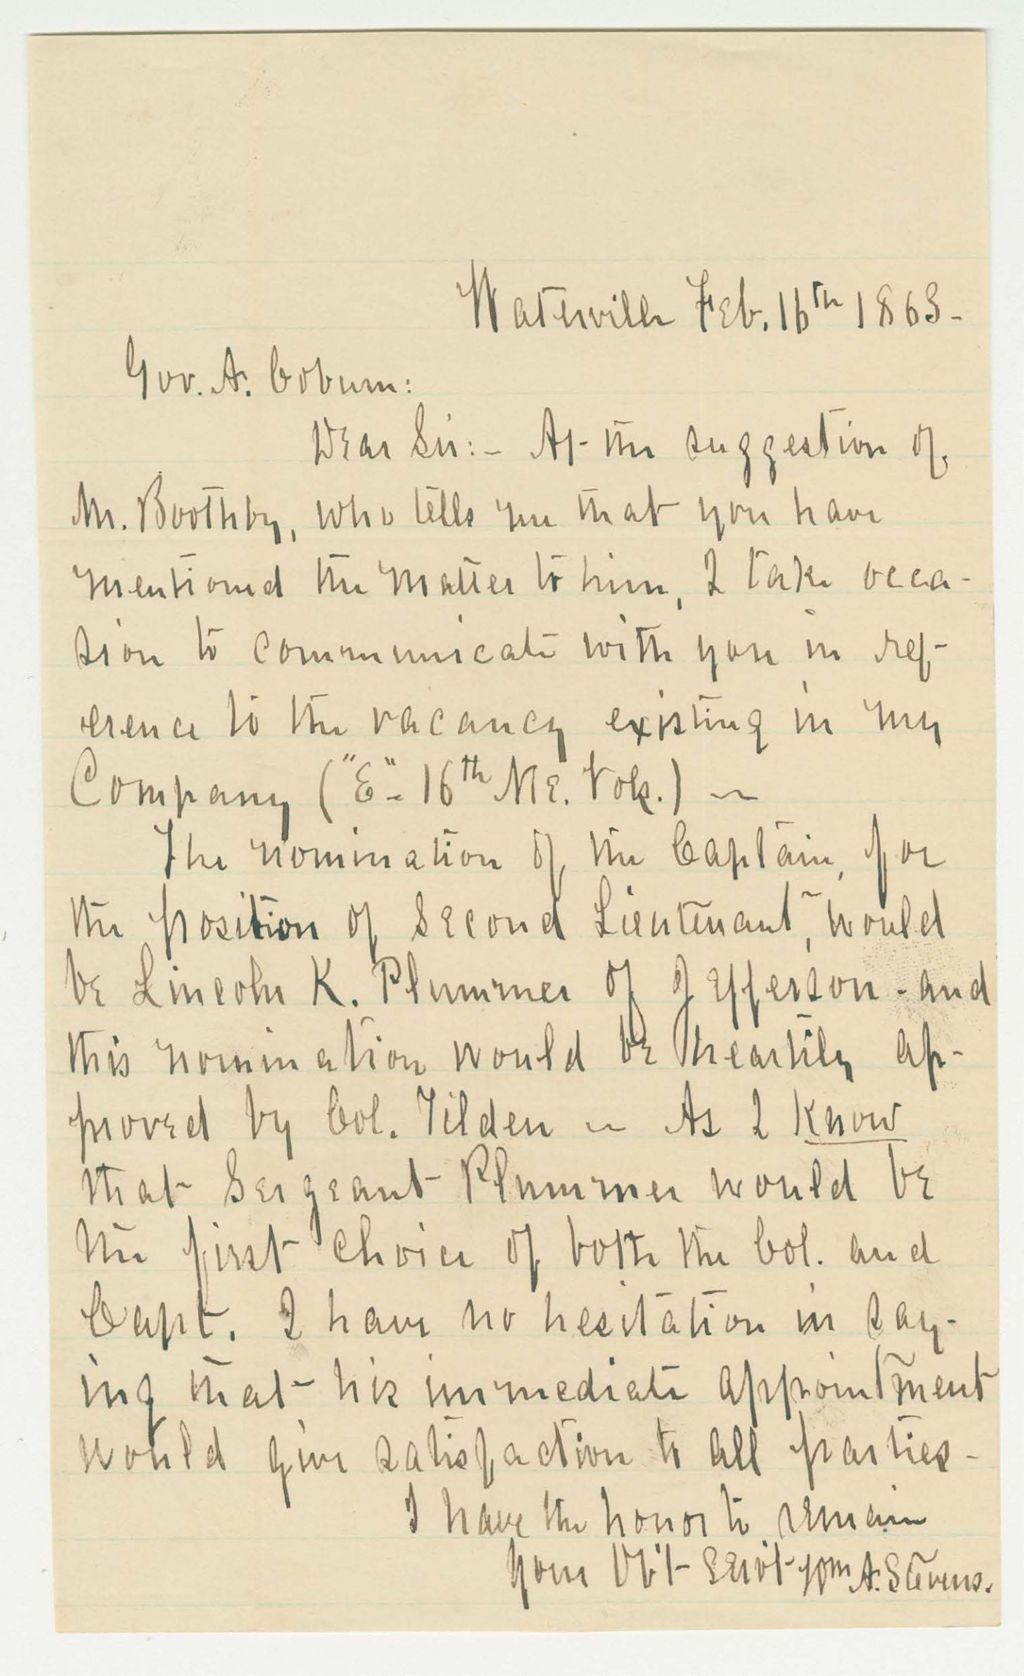 Waterville Feb. 16th 1863-
Gov. A. Coburn:
Dear Sir:- At the suggestion of
Mr. Boothby, who tells me that you have
mentioned the matter to him, I take occa-
sion to communicate with you in ref-
erence to the vacancy existing in my
Company ("E"- 16th Me. Vols.) ~
The nomination of the Captain, for
the position of Second Lieutenant, would
be Lincoln K. Plummer of Jefferson - and
this nomination would be heartily ap-
proved by Col. Tilden ~ As I know
that Sergeant Plummer would be
the first choice of both the Col. and
Capt. I have no hesitation in say-
ing that his immediate appointment
would give satisfaction to all parties-
I have the honor to remain
Your Ob't Serv't Wm A. Stevens.